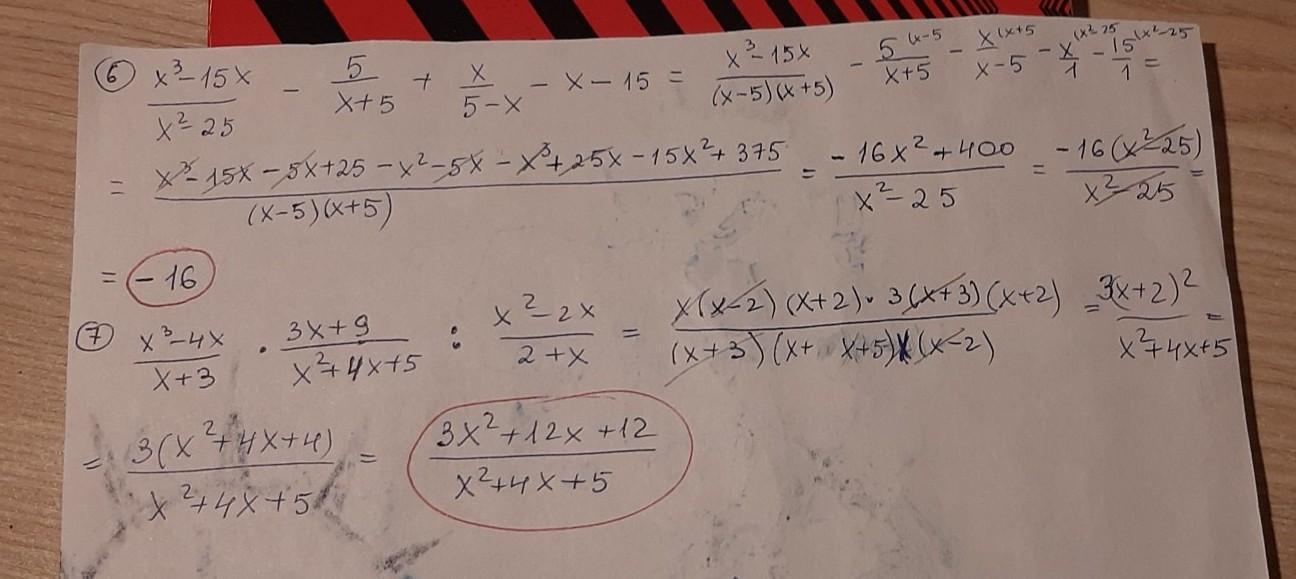 ⑥ (x³-15x)/(x²-25) - 5/(x+5) + x/(5-x) - x - 15 = (x³-15x)/((x-5)(x+5)) - 5^(x-5/(x+5) - x^(x+5/(x-5) - x^(x²-25/1 - 15^(x²-25/1 =
= (x³-15x-5x+25-x²-5x-x³+25x-15x²+375)/((x-5)(x+5)) = (-16x²+400)/(x²-25) = (-16(x²-25))/(x²-25) =
= -16
⑦ (x³-4x)/(x+3) · (3x+9)/(x²+4x+5) : (x²-2x)/(2+x) = (x(x-2)(x+2)·3(x+3)(x+2))/((x+3)(x+ x+5)x(x-2)) = 3(x+2)²/(x²+4x+5) =
= 3(x²+4x+4)/(x²+4x+5) = (3x²+12x+12)/(x²+4x+5)